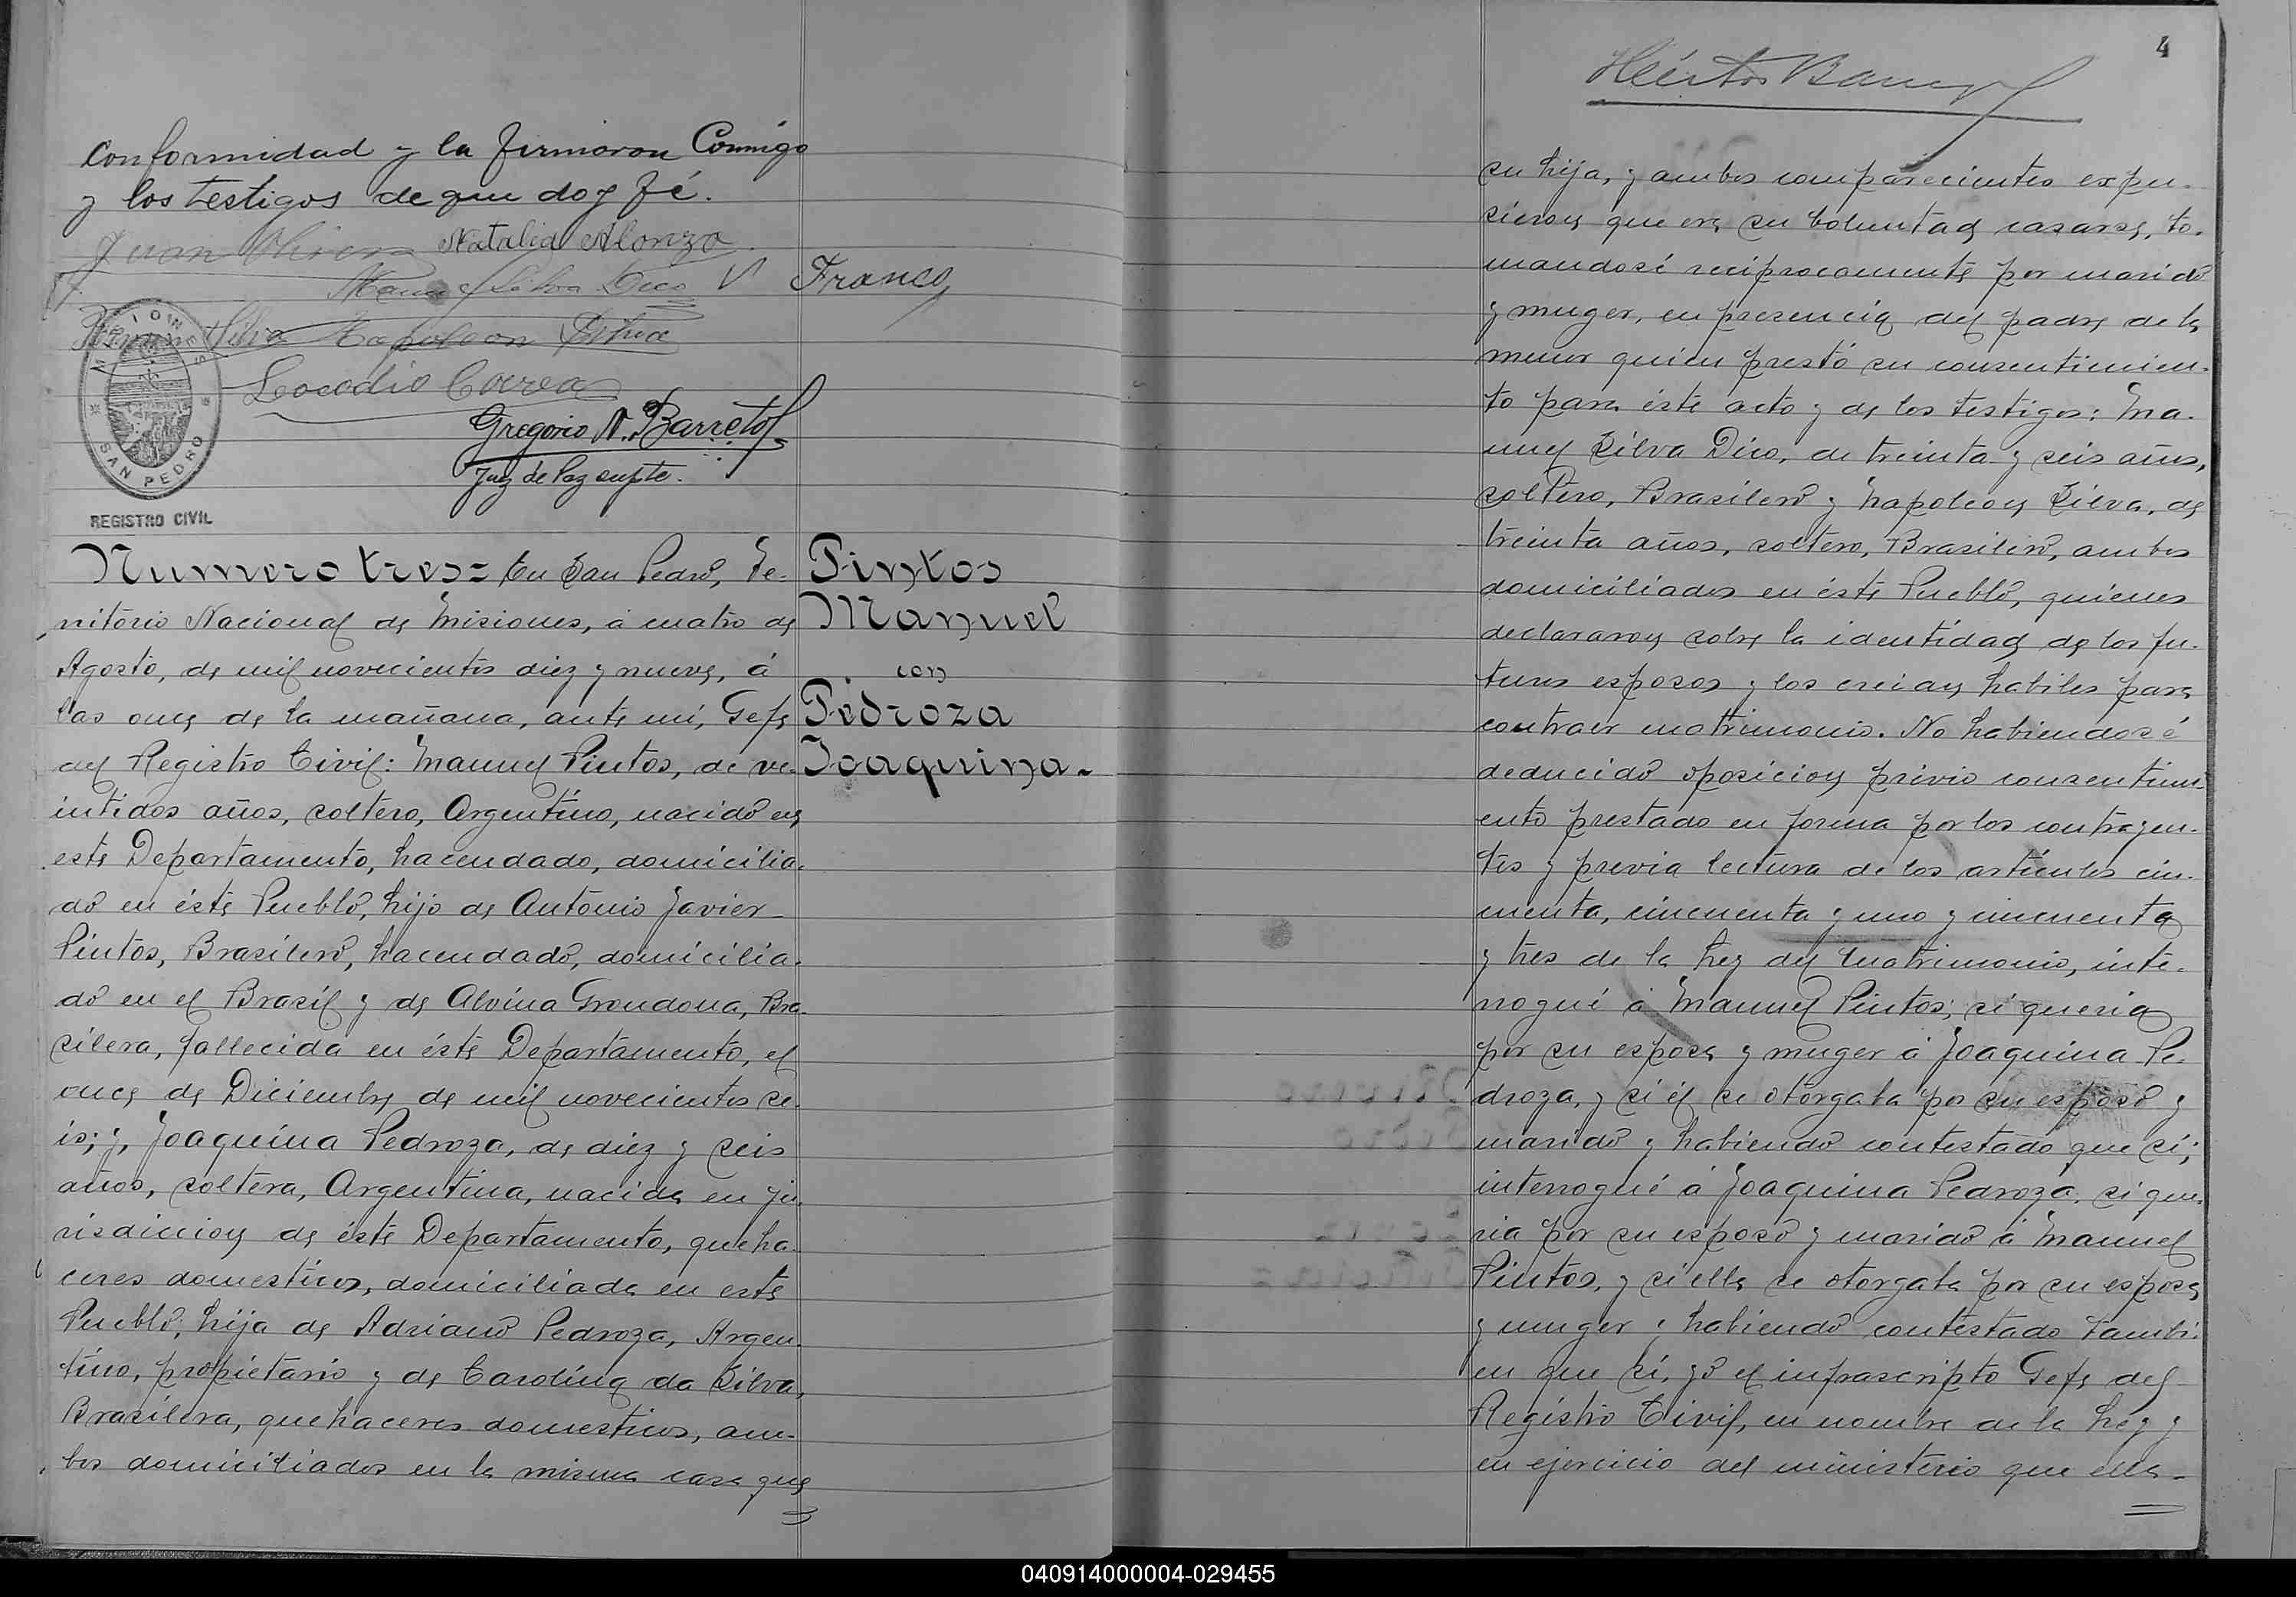 conformidad y la firmaron Conmigo
y los testigos de que doy fé.
Juan Natalia Alonzo
Manuel Silva Dico Franco
Silva Napoleon Silva
Leocadio Correa
Gregorio N. Barreto
Juz de Paz suplte.
MISIONES
SAN PEDRO
REGISTRO CIVIL
Numero tres= En San Pedro, Te-
rritorio Nacional de Misiones, á cuatro de
Agosto, de mil novecientos diez y nueve, á
las once de la mañana, ante mí, Gefe
del Registro Civil: Manuel Pintos, de ve-
intidos años, soltero, Argentino, nacido en
este Departamento, hacendado, domicilia-
do en éste Pueblo, hijo de Antonio Javier
Pintos, Brasilero, hacendado, domicilia-
do en el Brasil y de Alvina Grondona, Bra-
silera, fallecida en éste Departamento, el
once de Diciembre de mil novecientos se-
is; y, Joaquina Pedroza, de diez y seis
años, soltera, Argentina, nacida en ju-
risdiccion de éste Departamento, queha-
ceres domesticos, domiciliada en este
Pueblo, hija de Adriano Pedroza, Argen-
tino, propietario y de Carolina da Silva,
Brasilera, quehaceres domesticos, am-
bos domiciliados en la misma casa que
Pintos
Manuel
con
Pedroza
Joaquina.
4
Héctor
su hija, y ambos comparecientes expu-
sieron que era su voluntad casarse, to-
mandosé reciprocamente por marido
y muger, en presencia del padre de la
menor quien prestó su consentimien-
to para éste acto y de los testigos: Ma-
nuel Silva Dico, de treinta y seis años,
soltero, Brasilero y Napoleon Silva, de
treinta años, soltero, Brasilero, ambos
domiciliados en éste Pueblo, quienes
declararon sobre la identidad de los fu-
turos esposos y los creian habiles para
contraer matrimonio. No habiendosé
deducido oposicion previo consentimi-
ento prestado en forma por los contrayen-
tes y previa lectura de los artículos cin-
cuenta, cincuenta y uno y cincuenta
y tres de la Ley del Matrimonio, inte-
rrogué á Manuel Pintos; si queria
por su esposa y muger á Joaquina Pe-
droza, y si él se otorgaba por su esposo y
marido y habiendo contestado que sí;
interrogué á Joaquina Pedroza, si que-
ria por su esposo y marido á Manuel
Pintos, y si ella se otorgaba por su esposa
y muger y habiendo contestado tambi-
en que sí, yo el infrascripto Gefe del
Registro Civil, en nombre de la Ley y
en ejercicio del ministerio que ella
040914000004-029455